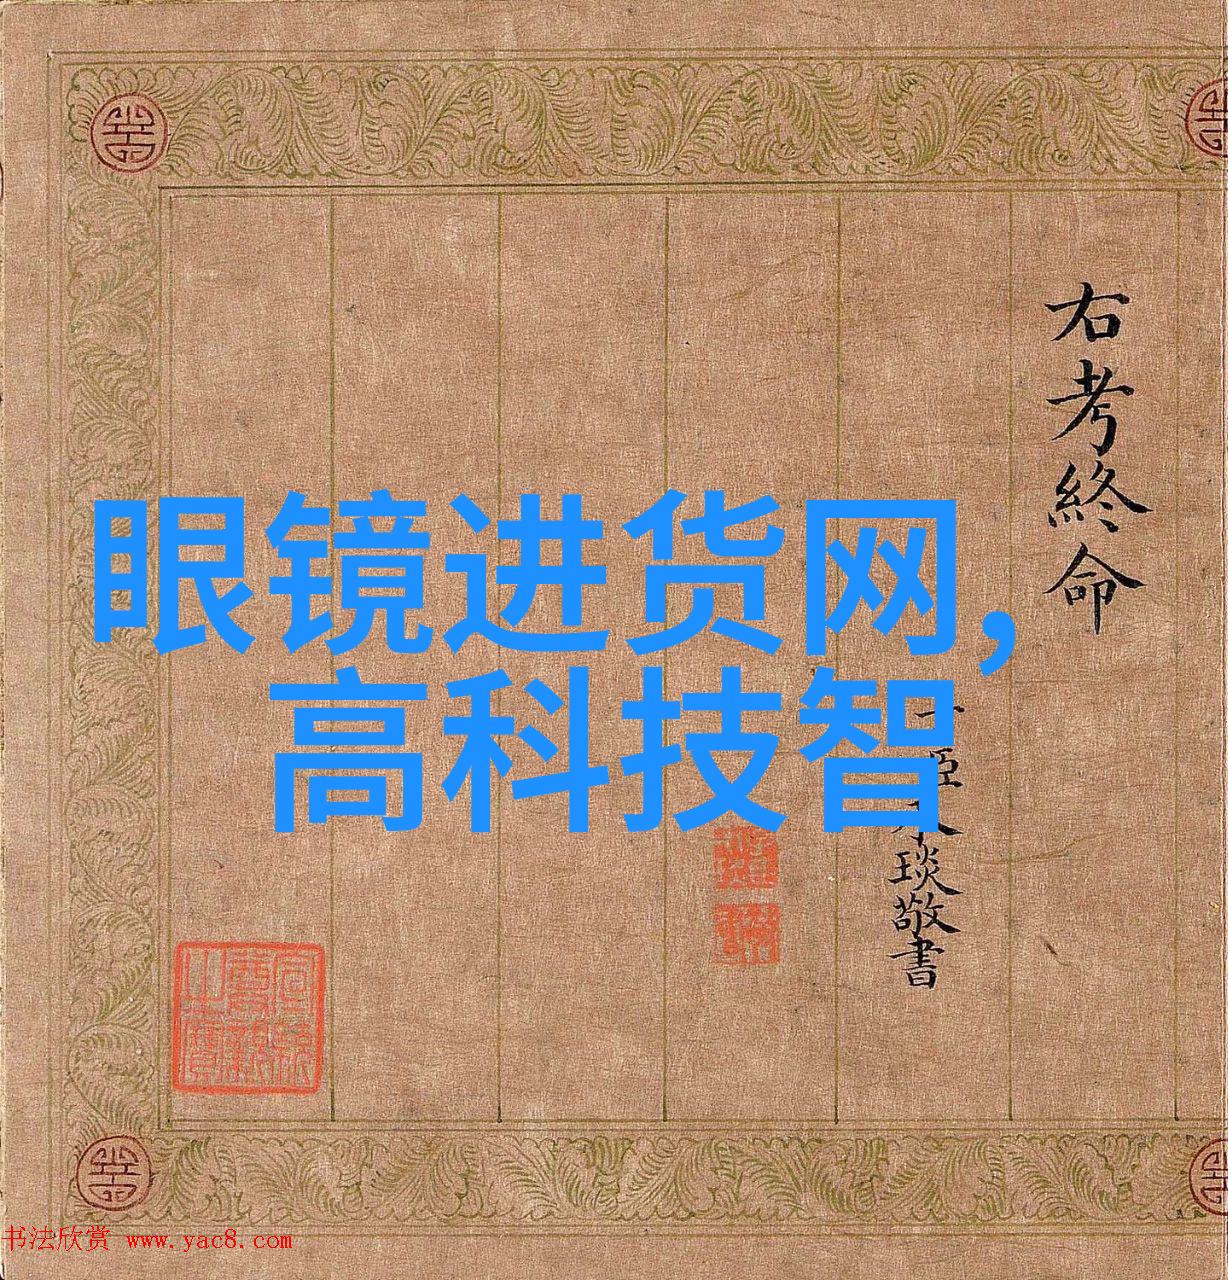 眼镜进货网,
高科技智
右考終命
琰敬書
书法欣赏 www.yac8.com